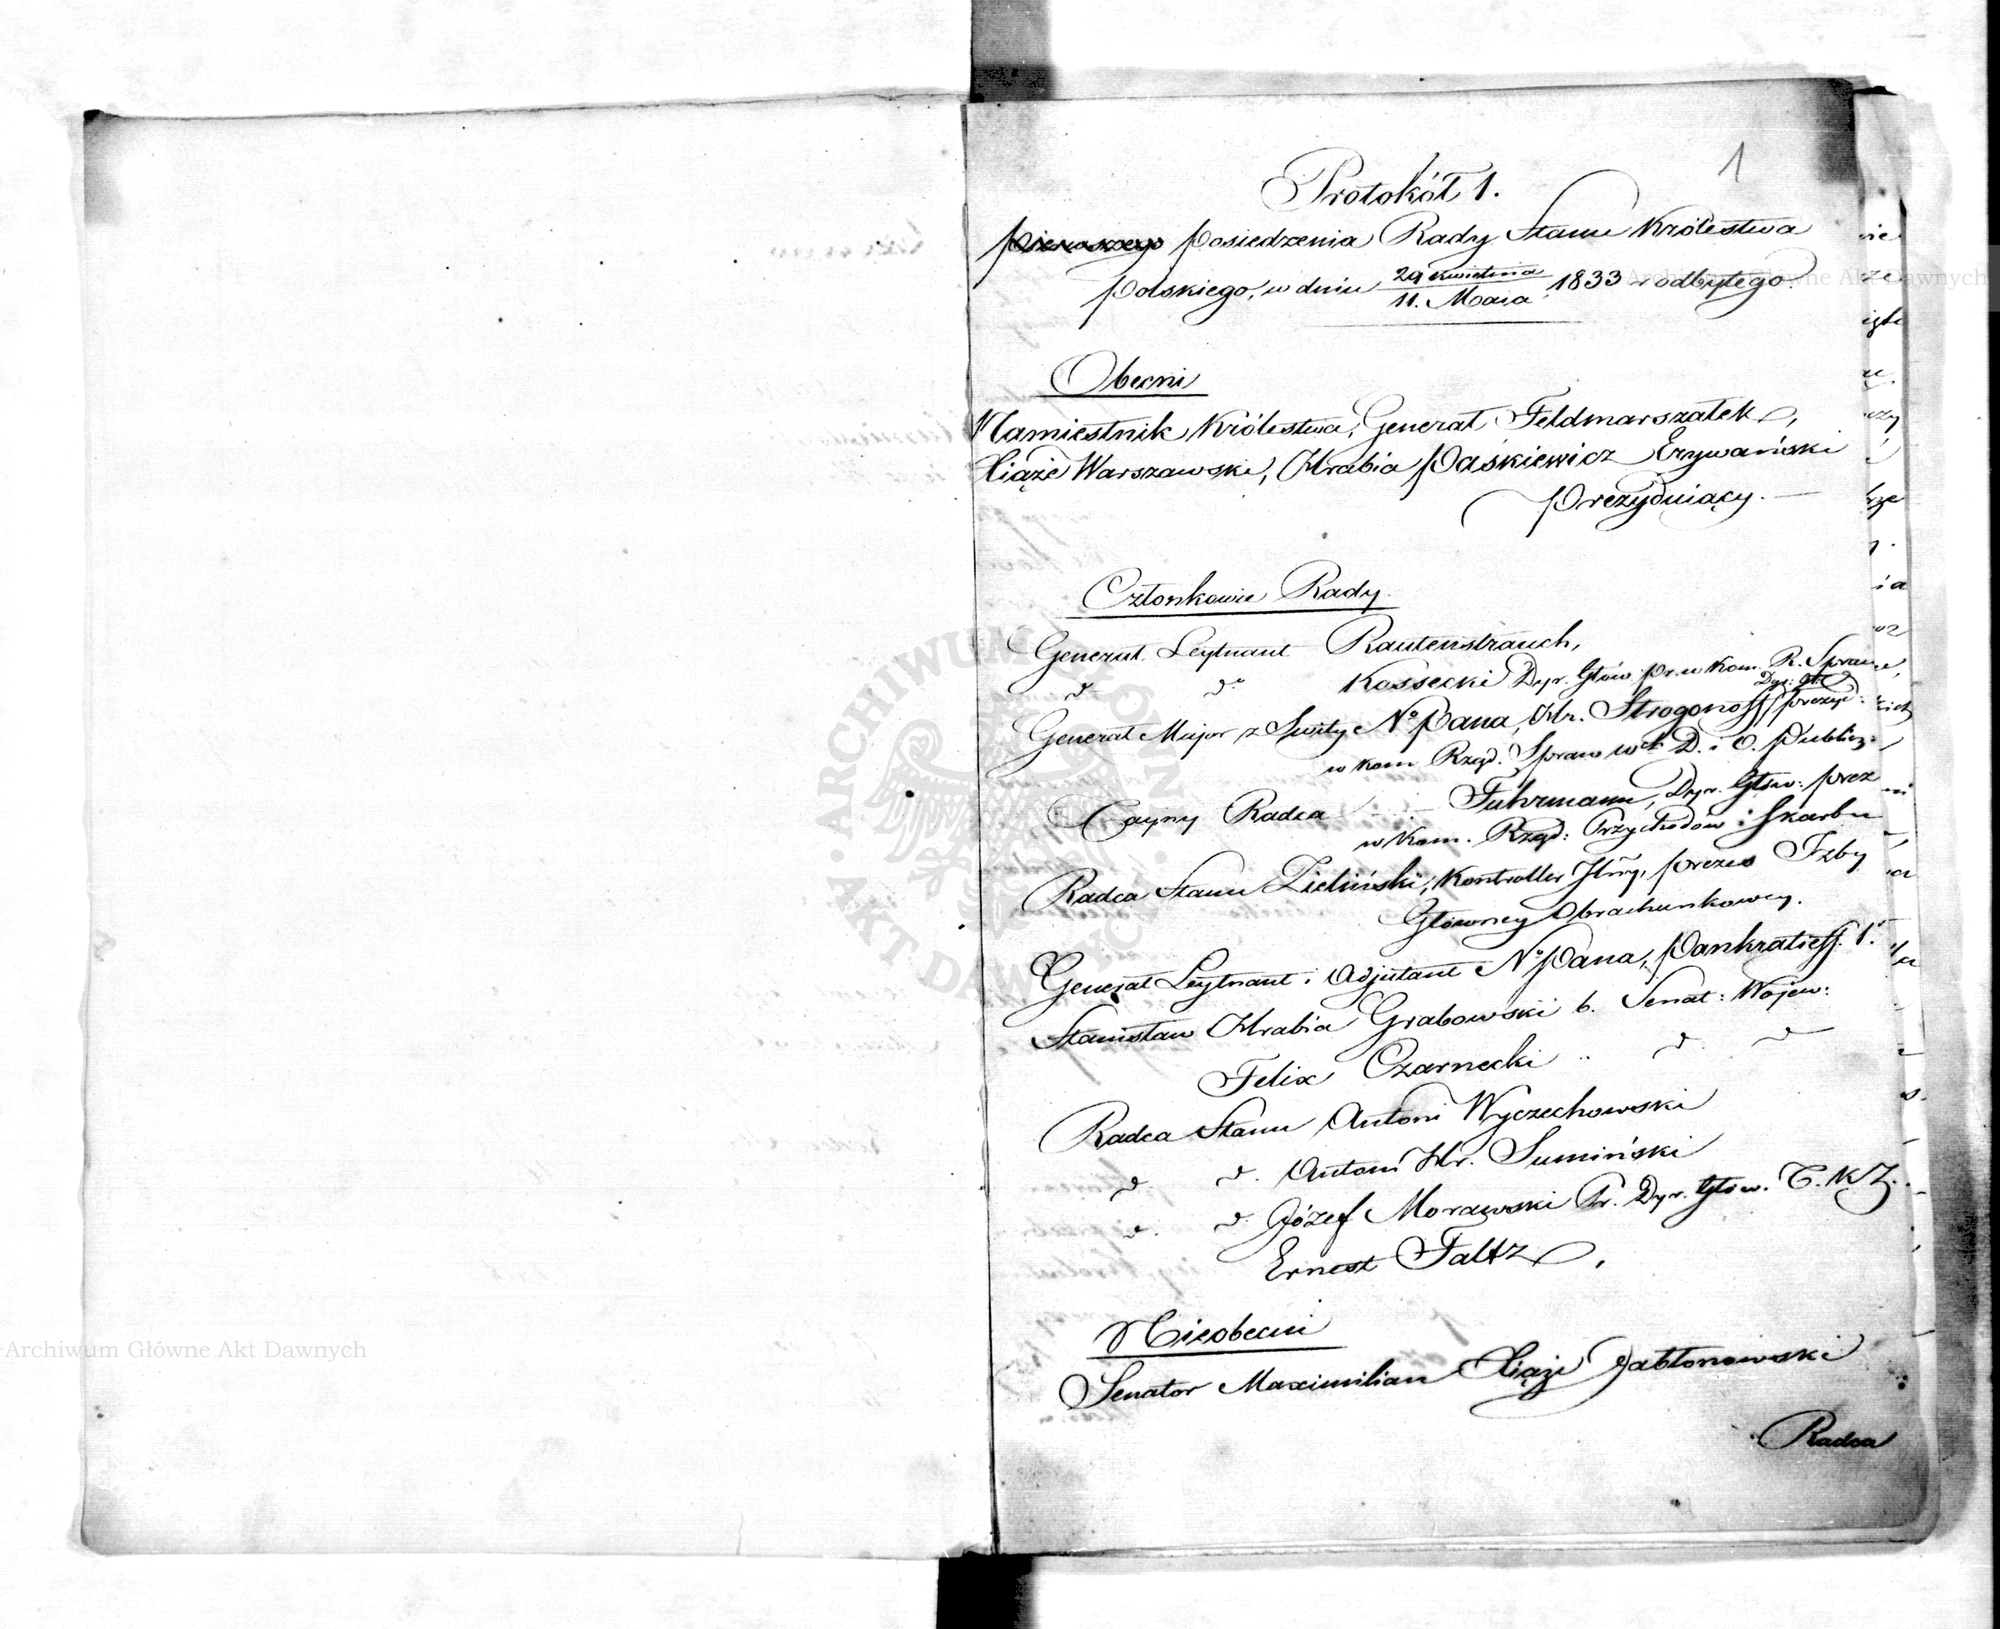 1
Protokół 1.
pierwszego posiedzenia Rady Stanu Królestwa
Polskiego, w dniu 29 Kwietnia / 11. Maia 1833 r odbytego.
Obecni
Namiestnik Królestwa, Generał Feldmarszałek,
Xiąże Warszawski, Hrabia Paskiewicz Erywański
Prezyduiący. —
Członkowie Rady.
Generał Leytnant Rautenstrauch,
d° d° Kossecki Dyr. Głów Pr. w Kom. R. Spraw,
Dyr: Gł:
Generał Major z Świty N° Pana, Hr. Strogonoff prezyd:
w Kom Rząd. Spraw W. D. i O. Publicz:
Tayny Radca — Fuhrmann, Dyr. Głów: prez
w Kom. Rząd: Przychodow i Skarbu
Radca Stanu Zieliński, Kontroller Jlny, prezes Izby
Główney Obrachunkowey.
Generał Leytnant i Adjutant N° Pana, Pankratieff 1.
Stanisław Hrabia Grabowski b. Senat: Wojew:
Felix Czarnecki " d d
Radca Stanu Antoni Wyczechowski
d. d. Antoni Hr. Sumiński
d. d. Józef Morawski Pr. Dyr. Głów. T. K. Z.
Ernest Faltz,
Nieobecni
Senator Maximilian Xiąże Jabłonowski
Radca
Archiwum Główne Akt Dawnych
Archiwum Główne Akt Dawnych
ARCHIWUM GŁÓWNE
AKT DAWNYCH